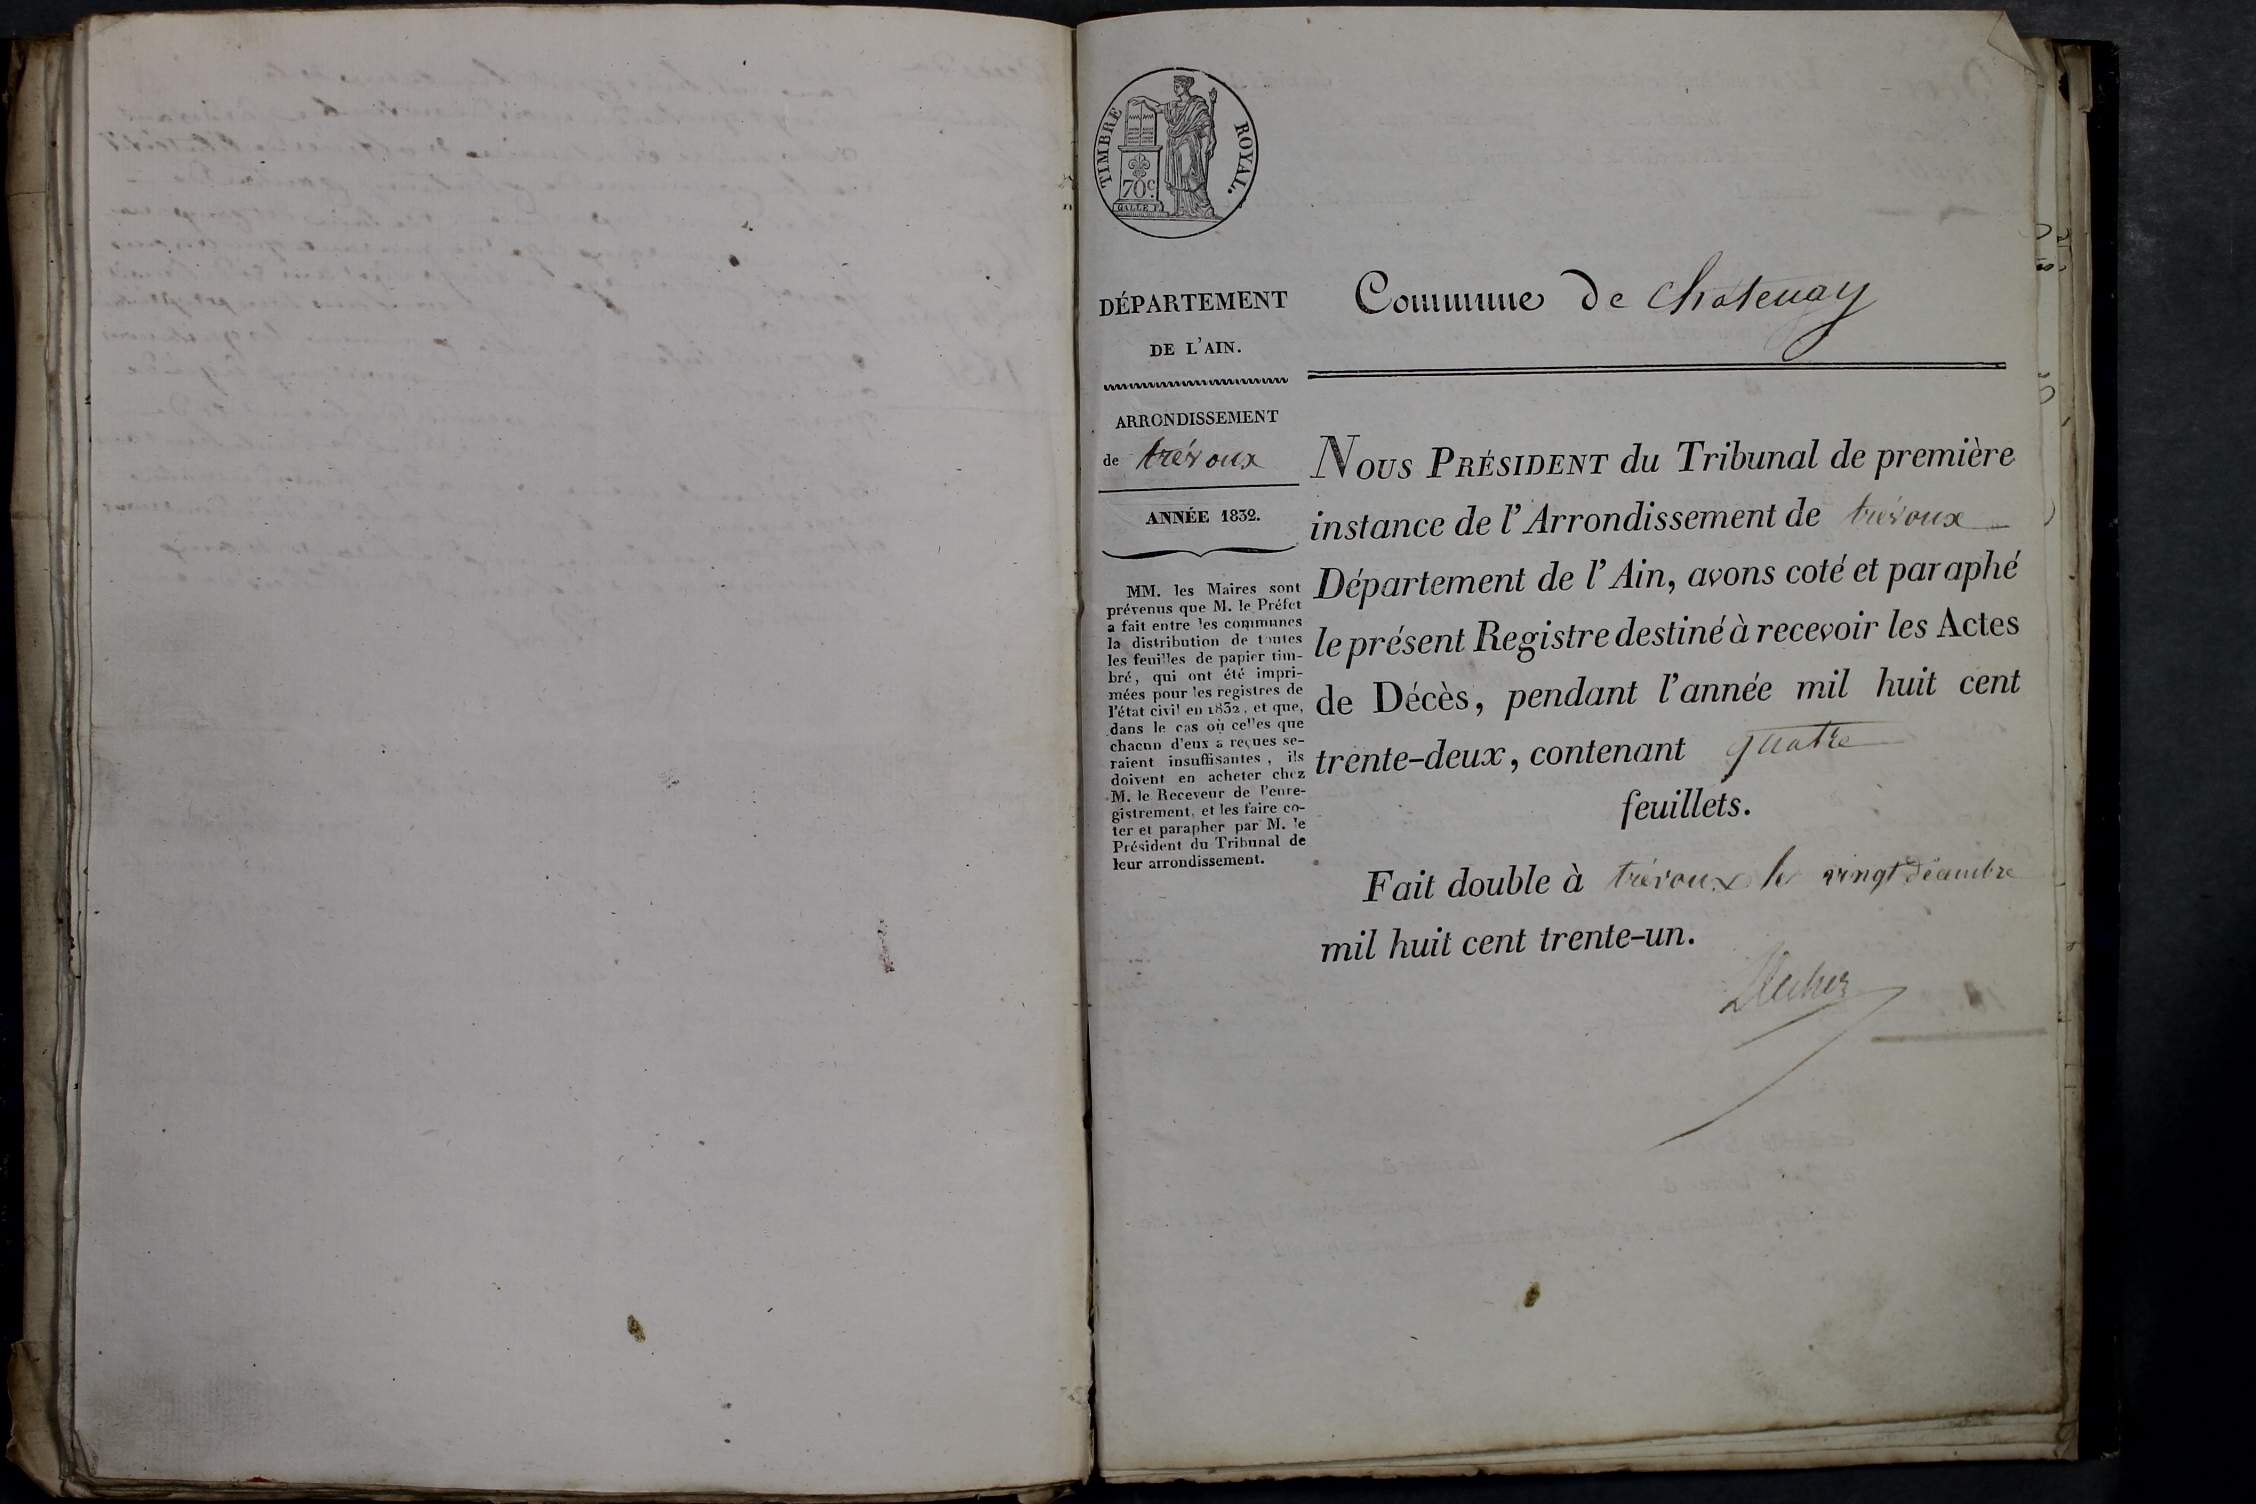 TIMBRE ROYAL.
70c
GALLE F.
DÉPARTEMENT
DE L'AIN.
ARRONDISSEMENT
de trévoux
ANNÉE 1832.
MM. les Maires sont
prévenus que M. le Préfet
a fait entre les communes
la distribution de toutes
les feuilles de papier tim-
bré, qui ont été impri-
mées pour les registres de
l'état civil en 1832, et que,
dans le cas où celles que
chacun d'eux a reçues se-
raient insuffisantes, ils
doivent en acheter chez
M. le Receveur de l'enre-
gistrement, et les faire co-
ter et parapher par M. le
Président du Tribunal de
leur arrondissement.
Commune de chatenay
NOUS PRÉSIDENT du Tribunal de première
instance de l'Arrondissement de trévoux
Département de l'Ain, avons coté et paraphé
le présent Registre destiné à recevoir les Actes
de Décès, pendant l'année mil huit cent
trente-deux, contenant quatre
feuillets.
Fait double à trévoux le vingt décembre
mil huit cent trente-un.